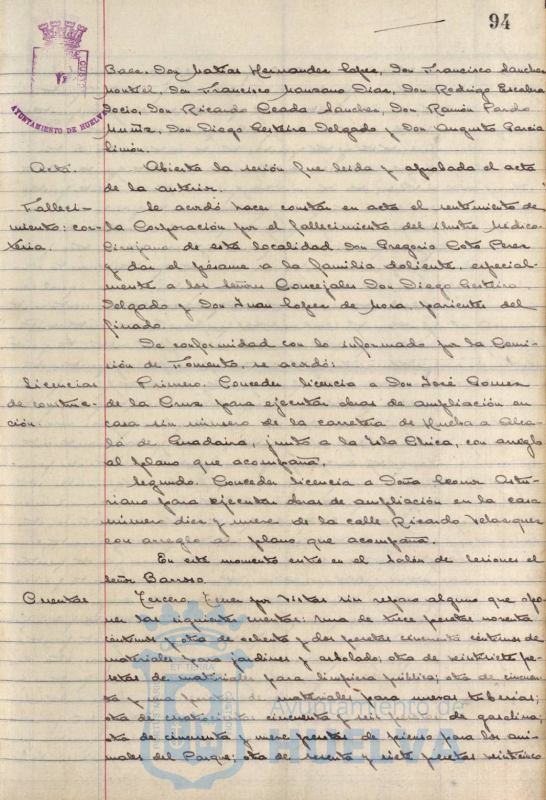 94
AYUNTAMIENTO DE HUELVA
Baez, Don Matias Hernandez Lopez, Don Francisco Sanchez
Montiel, Don Francisco Manzano Diaz, Don Rodrigo Escalera
Socio, Don Ricardo Ceada Sanchez, Don Ramón Pardo
Muñiz, Don Diego Delgado y Don Augusto Garcia
Limón.
Acta.
Abierta la sesión fue leida y aprobada el acta
de la anterior.
Falleci-
miento: cor-
tesia.
Se acordó hacer constar en acta el sentimiento de
la Corporación por el fallecimiento del ilustre Médico-
Cirujano de esta localidad Don Gregorio Coto Perez
y dar el pésame a la familia doliente, especial-
mente a los señores Concejales Don Diego
Delgado y Don Juan Lopez de Mora, parientes del
finado.
De conformidad con lo informado por la Comi-
sión de Fomento, se acordó:
Licencias
de construc-
ción.
Primero. Conceder licencia a Don José Gomez
de la Cruz para ejecutar obras de ampliación en
casa sin número de la carretera de Huelva a Alca-
lá de Guadaira, junto a la Isla Chica, con arreglo
al plano que acompaña.
Segundo. Conceder licencia a Doña Leonor Astu-
riano para ejecutar obras de ampliación en la casa
número diez y nueve de la calle Ricardo Velazquez
con arreglo al plano que acompaña.
En este momento entra en el Salón de Sesiones el
Señor Barroso.
Cuentas
Tercero. Tener por vistas sin reparo alguno que opo-
ner las siguientes cuentas: una de trece pesetas noventa
céntimos y otra de ochenta y dos pesetas cincuenta céntimos de
materiales para jardines y arbolado; otra de veintisiete pe-
setas de materiales para limpieza pública; otra de cincuen-
ta y pesetas de materiales para nuevas tuberias;
otra de cuatrocientas cincuenta y seis pesetas de gasolina;
otra de cincuenta y nueve pesetas de pienso para los ani-
males del Parque; otra de y siete pesetas veinticinco
Ayuntamiento de
HUELVA